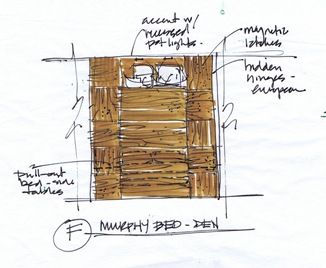 accent w/
recessed
pot lights.
magnetic
latches
hidden
hinges -
european
pull-out
bed-side
tables
F MURPHY BED - DEN